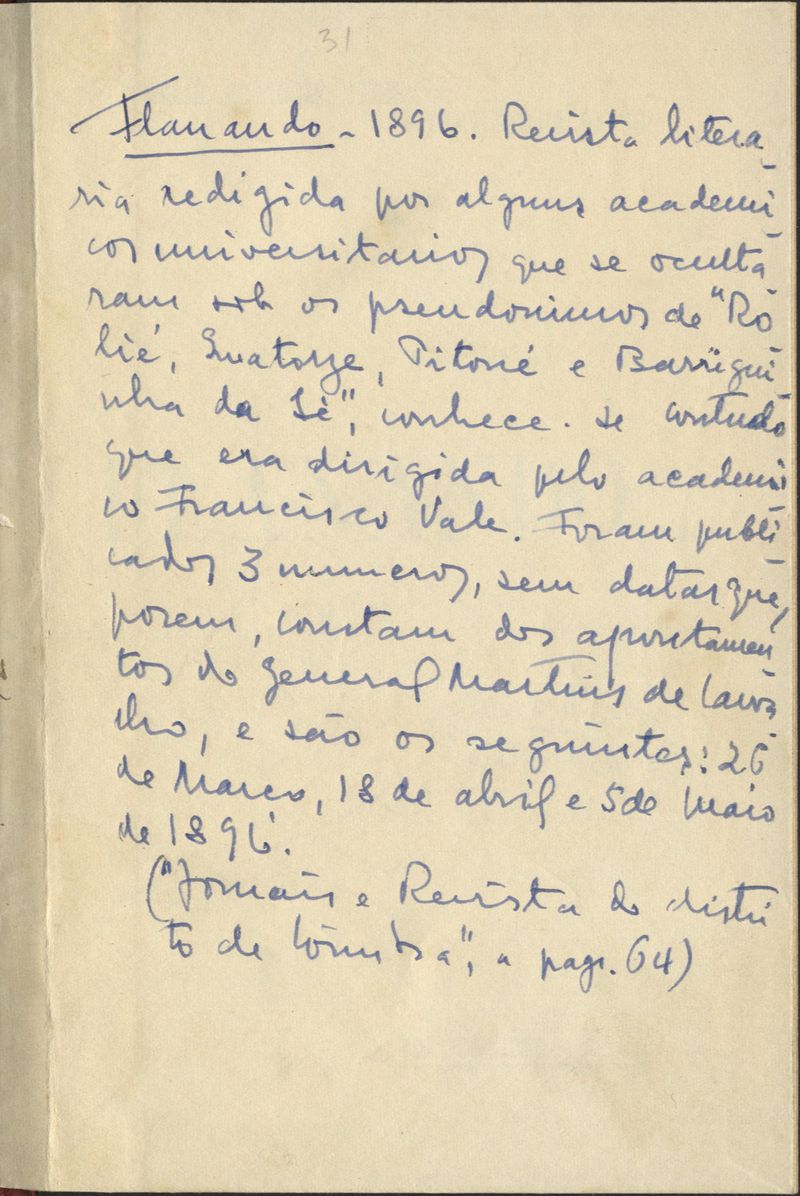 31
Flanando - 1896. Revista litera-
ria redigida por alguns academi-
cos universitarios que se oculta-
ram sob os pseudonimos de "Ró-
lié, Guatorze, Pitoné e Barrigui-
nha da Sé", conhece-se contudo
que era dirigida pelo academi-
co Francisco Vale. Foram publi-
cados 3 numeros, sem datas que,
porem, constam dos apontamen-
tos do General Martins de Carva-
lho, e são os seguintes: 26
de Março, 18 de abril e 5 de Maio
de 1896.
("Jornais e Revista do distri-
to de Coimbra", a pags. 64)